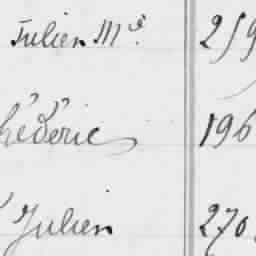 Julien Md. 259
hédéric 196
Julien 270